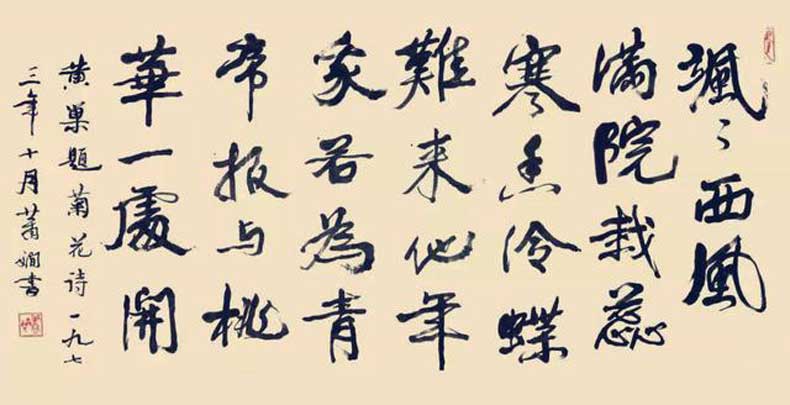 颯〻西風
满院栽蕊
寒香冷蝶
難来他年
我若為青
帝报与桃
華一處開
黄巢題菊花诗一九七
三年十月萧嫻書